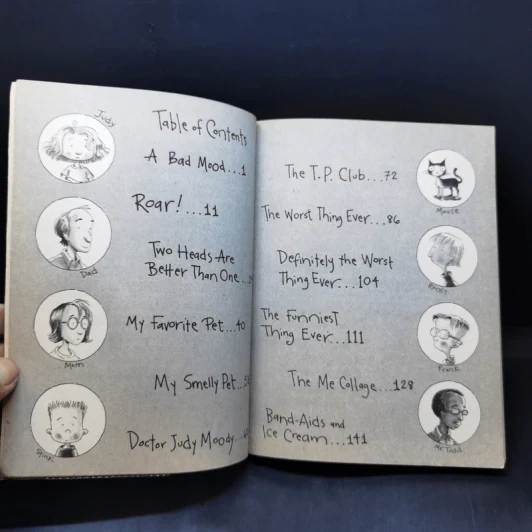 Judy
Table of Contents
A Bad Mood...1
Roar!...11
Dad
Two Heads Are
Better Than One...
My Favorite Pet...40
Mom
My Smelly Pet...
Doctor Judy Moody...
Stink
The T.P. Club...72
Mouse
The Worst Thing Ever...86
Definitely the Worst
Thing Ever...104
Rocky
The Funniest
Thing Ever...111
Frank
The Me Collage...128
Band-Aids and
Ice Cream...141
Mr. Todd